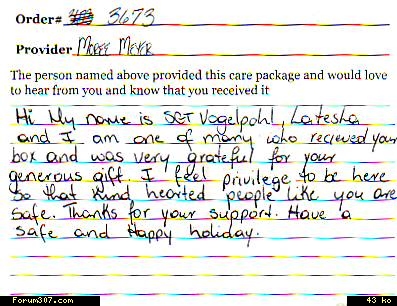 Order# 3673
Provider Meyer
The person named above provided this care package and would love
to hear from you and know that you received it
Hi My name is SGT Vogelpohl, Latesha
and I am one of many who recieved your
box and was very grateful for your
generous gift. I feel privilege to be here
so that kind hearted people like you are
safe. Thanks for your support. Have a
safe and Happy holiday.
Forum307.com
43 ko